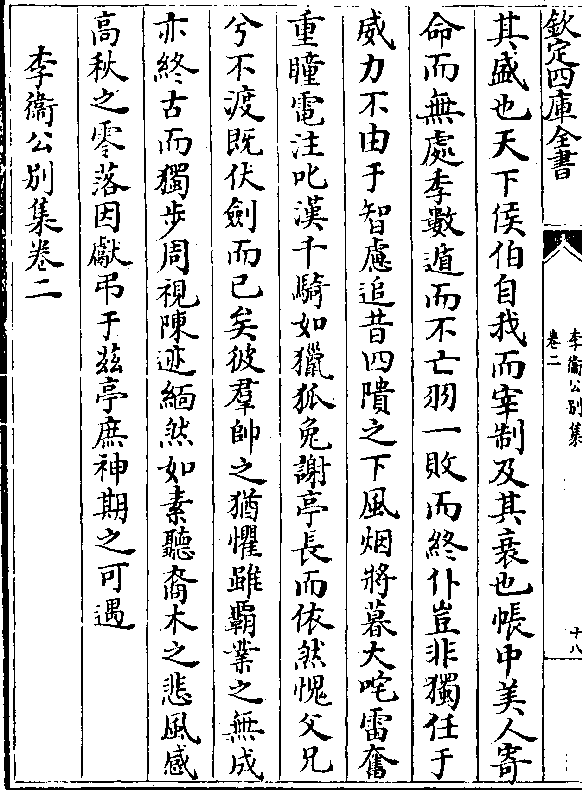 欽定四庫全書
李衞公別集
卷二
十八
其盛也天下侯伯自我而宰制及其衰也帳中美人寄
命而無處季數遁而不亡羽一敗而終仆豈非獨任于
威力不由于智慮追昔四隤之下風烟將暮大咤雷奮
重瞳電注叱漢千騎如獵狐兔謝亭長而依然愧父兄
兮不渡既伏劍而已矣彼羣帥之猶懼雖霸業之無成
亦終古而獨步周視陳迹緬然如素聽喬木之悲風感
高秋之零落因獻弔于兹亭庶神期之可遇
李衞公別集卷二